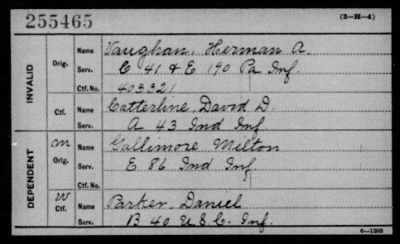 255465
(3-H-4)
INVALID
Orig.
Name Vaughan, Herman A.
Serv. C 41 & E 190 Pa Inf.
Ctf. No. 403321
Ctf.
Name Catterline, David D.
Serv. A 43 Ind Inf
DEPENDENT
m
Orig.
Name Gallimore Milton
Serv. E 86 Ind Inf
Ctf. No.
W
Ctf.
Name Parker, Daniel
Serv. B 40 U S C. Inf.
6-1203